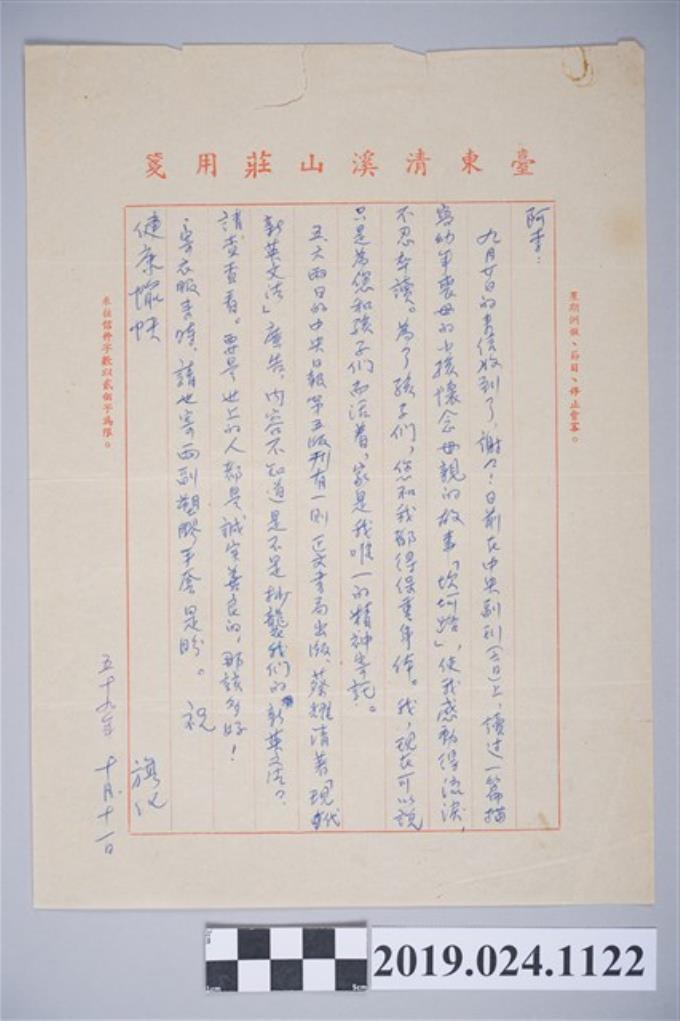 臺東清溪山莊用箋
星期例假、節日、停止會客。
阿李：
九月廿日的書信收到了，謝々！日前在中央副刊(六日)上，讀過一篇描
寫幼年喪母的小孩懷念母親的故事「坎坷路」，使我感動得流淚，
不忍卒讀。為了孩子們，您和我都得保重身体。我，現在可以說
只是為您和孩子們而活着，家是我唯一的精神寄託。
五、六兩日的中央日報第五版刊有一則正文書局出版、蔡耀清著「現代
新英文法」廣告，內容不知道是不是抄襲我們的新英文法？
請查查看。要是世上的人都是誠实善良的，那該多好！
寄衣服來時，請也寄兩副塑膠手套是盼。祝
健康愉快
旗化
五十九年十月十一日
來往信件字數以貳佰字為限。
2019.024.1122
5cm